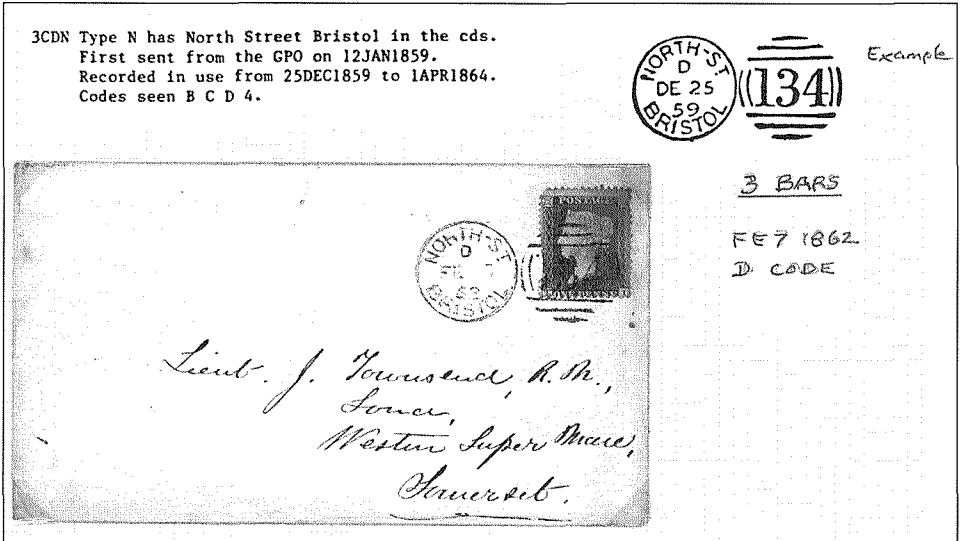 3CDN Type N has North Street Bristol in the cds.
First sent from the GPO on 12JAN1859.
Recorded in use from 25DEC1859 to 1APR1864.
Codes seen B C D 4.
NORTH-ST
D
DE 25
59
BRISTOL
134
Example
3 BARS
FE 7 1862
D CODE
POSTAGE
NORTH-ST
D
BRISTOL
Lieut. J. Townsend, R.M.,
Weston Super Mare,
Somerset.